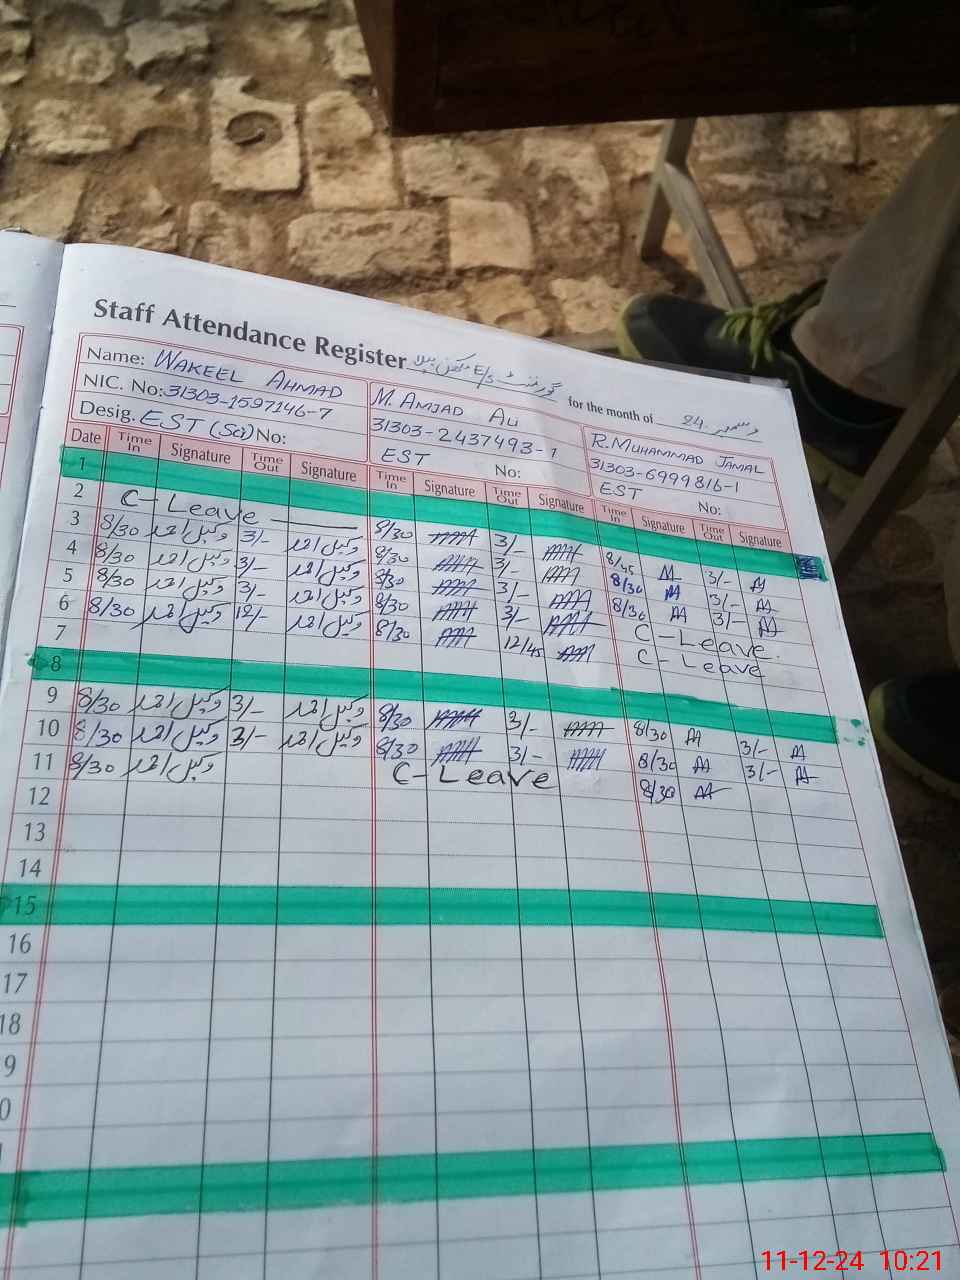 Staff Attendance Register گورنمنٹ E/S for the month of دسمبر 24
Name: WAKEEL AHMAD M. AMJAD ALI R. MUHAMMAD JAMAL
NIC. No: 31303-1597146-7 31303-2437493-1 31303-6999816-1
Desig. EST (Sci) No: EST No: EST No:
Date Time In Signature Time Out Signature Time In Signature Time Out Signature Time In Signature Time Out Signature
1
2 C-Leave 8/30 3/- 8/45 3/-
3 8/30 وکیل احمد 3/- وکیل احمد 8/30 3/- 8/30 3/-
4 8/30 وکیل احمد 3/- وکیل احمد 8/30 3/- 8/30 3/-
5 8/30 وکیل احمد 3/- وکیل احمد 8/30 3/- C-Leave
6 8/30 وکیل احمد 12/- وکیل احمد 8/30 12/45 C-Leave
7
8
9 8/30 وکیل احمد 3/- وکیل احمد 8/30 3/- 8/30 3/-
10 8/30 وکیل احمد 3/- وکیل احمد 8/30 3/- 8/30 3/-
11 8/30 وکیل احمد C-Leave 8/30
12
13
14
15
16
17
18
9
0
11-12-24 10:21